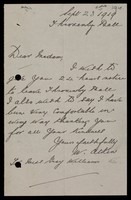 Sept 23 1919
Throvenly Hall
Dear Madam
I wish to
give you 24 hours notice
to leave Throvenly Hall
I also wish to say I have
been very comfortable in
every way thanking you
for all your kindness
Yours faithfully
W.
To Miss May Williams